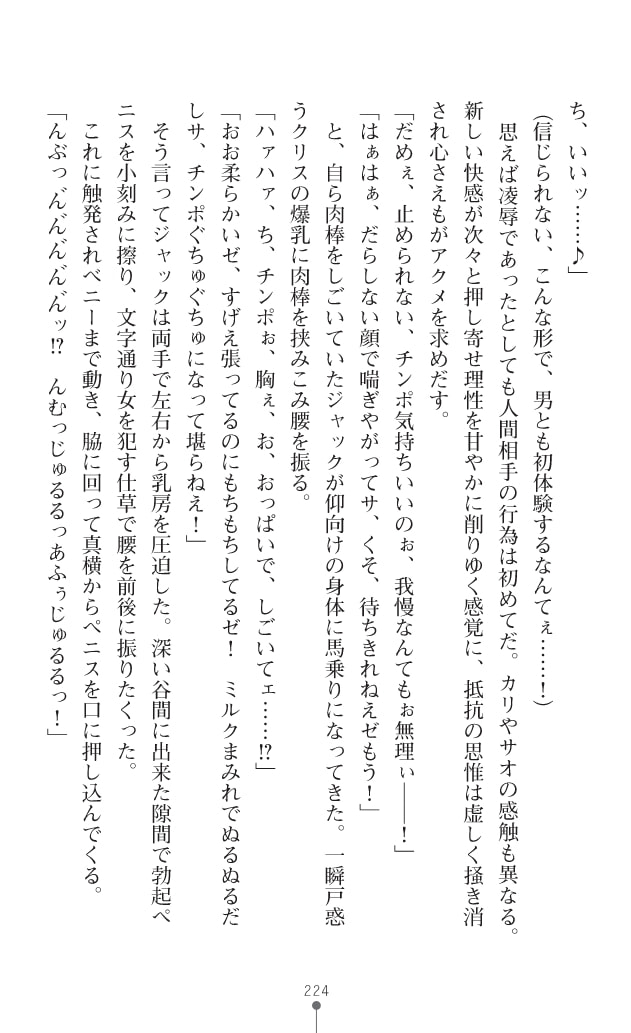 ち、いいッ……♪」
(信じられない、こんな形で、男とも初体験するなんてぇ……！)
思えば凌辱であったとしても人間相手の行為は初めてだ。カリやサオの感触も異なる。
新しい快感が次々と押し寄せ理性を甘やかに削りゆく感覚に、抵抗の思惟は虚しく掻き消
され心さえもがアクメを求めだす。
「だめぇ、止められない、チンポ気持ちいいのぉ、我慢なんてもぉ無理ぃ――！」
「はぁはぁ、だらしない顔で喘ぎやがってサ、くそ、待ちきれねえぜもう！」
と、自ら肉棒をしごいていたジャックが仰向けの身体に馬乗りになってきた。一瞬戸惑
うクリスの爆乳に肉棒を挟みこみ腰を振る。
「ハァハァ、ち、チンポぉ、胸ぇ、お、おっぱいで、しごいてェ……!?」
「おお柔らかいゼ、すげえ張ってるのにもちもちしてるゼ！　ミルクまみれでぬるぬるだ
しサ、チンポぐちゅぐちゅになって堪らねえ！」
そう言ってジャックは両手で左右から乳房を圧迫した。深い谷間に出来た隙間で勃起ペ
ニスを小刻みに擦り、文字通り女を犯す仕草で腰を前後に振りたくった。
これに触発されベニーまで動き、脇に回って真横からペニスを口に押し込んでくる。
「んぶっ゛ん゛ん゛ん゛ん゛ッ!?　んむっじゅるるっあふぅじゅるるっ！」
224